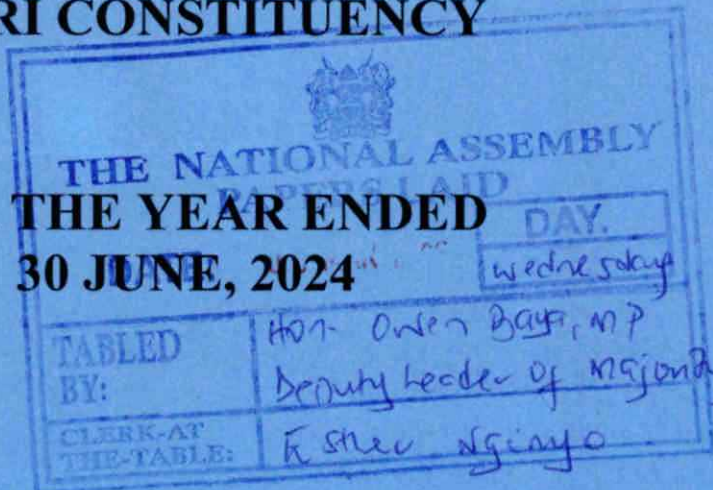 RI CONSTITUENCY
THE NATIONAL ASSEMBLY
PAPERS LAID
THE YEAR ENDED
DAY.
30 JUNE, 2024
wednesday
TABLED BY:
Hon. Owen Baya, MP
Deputy Leader of Majori
CLERK-AT THE-TABLE:
Esther Nginyo